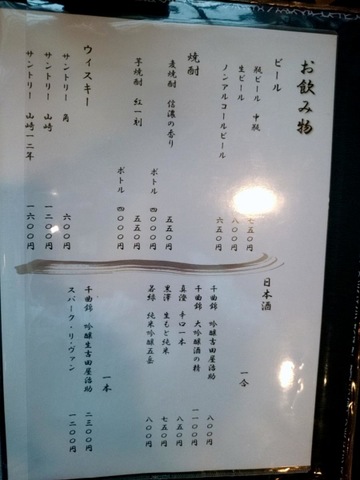 お飲み物
ビール
瓶ビール 中瓶 七五〇円
生ビール 八〇〇円
ノンアルコールビール 六五〇円
焼酎
麦焼酎 信濃の香り 五五〇円
ボトル 四〇〇〇円
芋焼酎 紅一刻 五五〇円
ボトル 四〇〇〇円
ウィスキー
サントリー 角 六〇〇円
サントリー 山崎 一二〇〇円
サントリー 山崎一二年 一六〇〇円
日本酒
一合
千曲錦 吟醸生吉田屋治助 八〇〇円
千曲錦 大吟醸酒の精 一一〇〇円
真澄 辛口一本 八五〇円
黒澤 生もと純米 七五〇円
若緑 純米吟醸五岳 八〇〇円
一本
千曲錦 吟醸生吉田屋治助 二三〇〇円
スパーク・リ・ヴァン 一二〇〇円